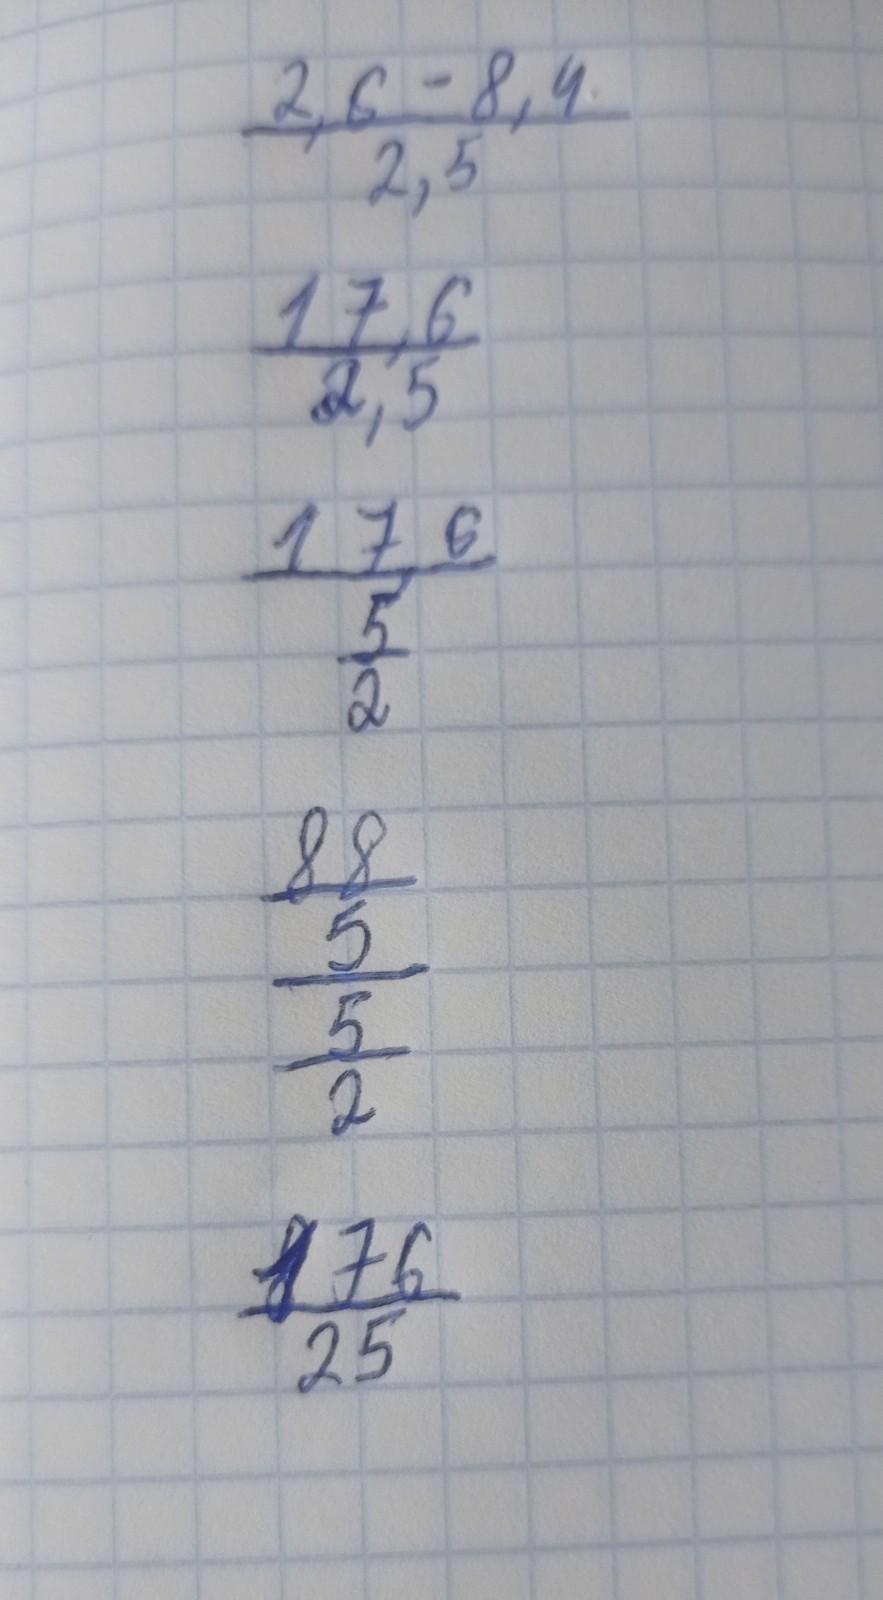 2,6 - 8,4
2,5
17,6
2,5
176
5
2
88
5
5
2
176
25